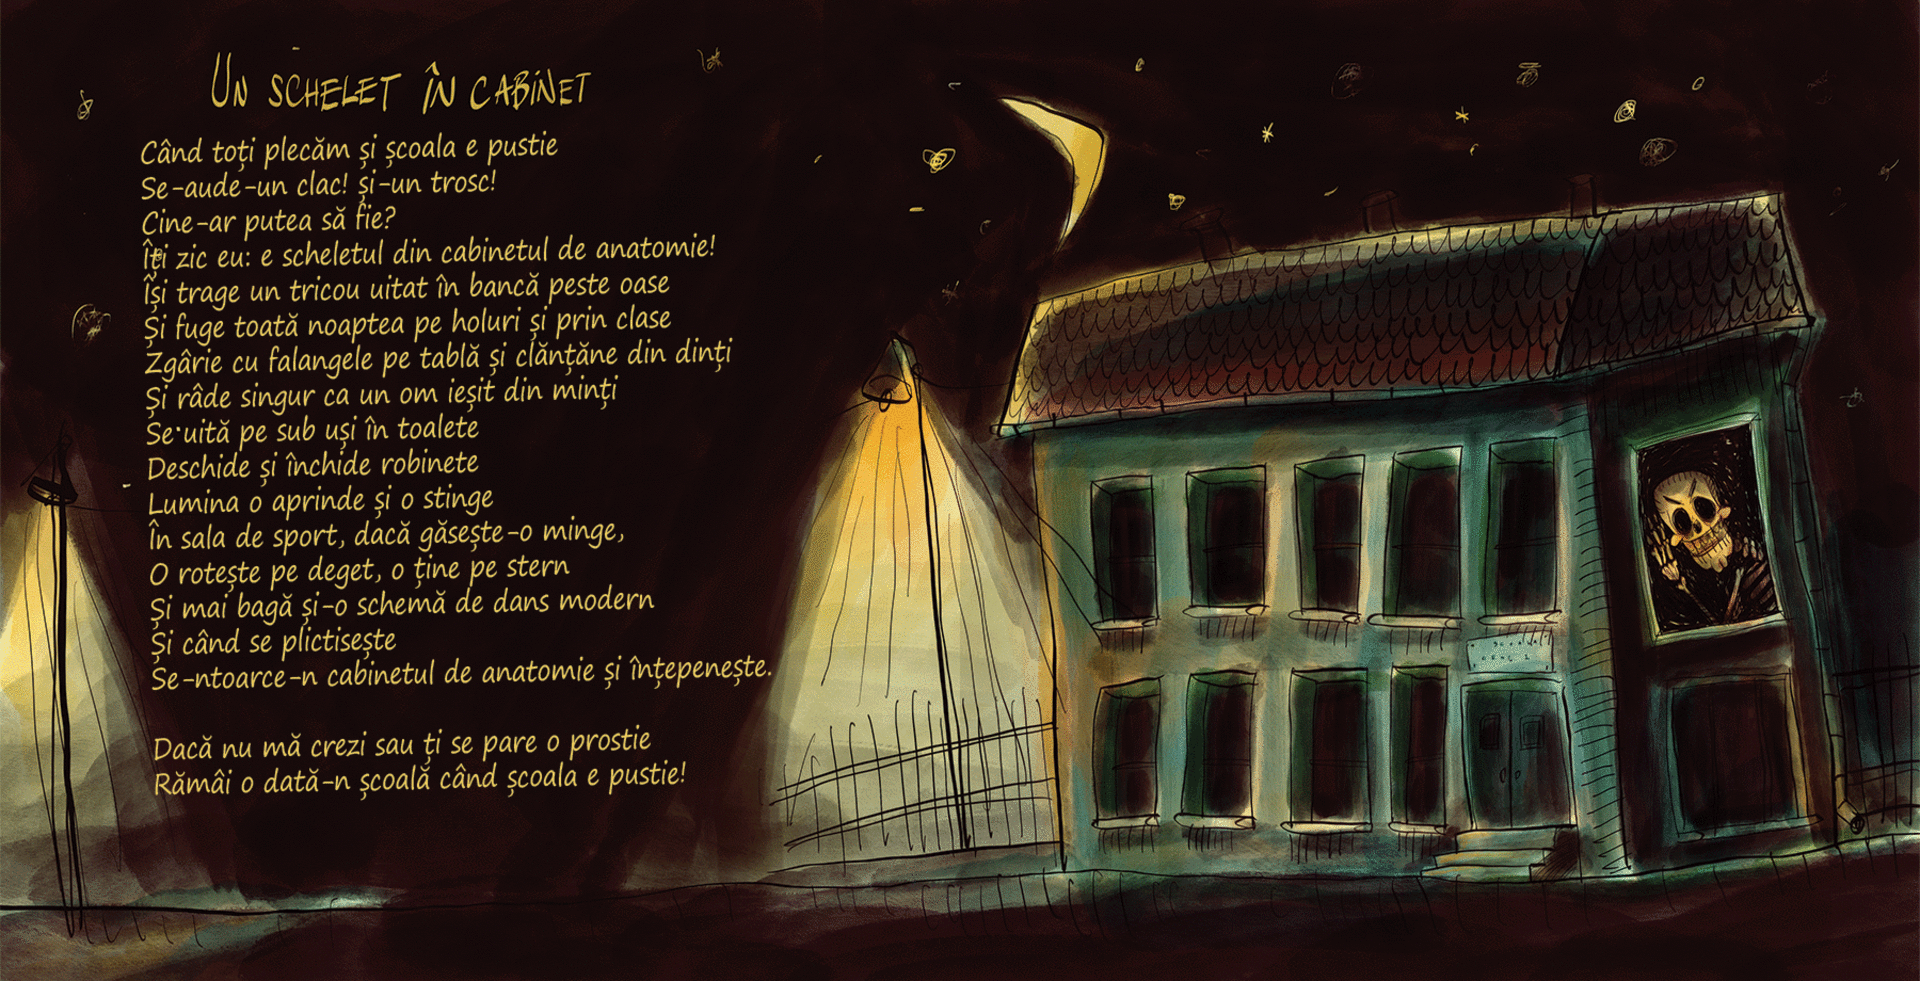 Un schelet în cabinet
Când toți plecăm și școala e pustie
Se-aude-un clac! și-un trosc!
Cine-ar putea să fie?
Îți zic eu: e scheletul din cabinetul de anatomie!
Își trage un tricou uitat în bancă peste oase
Și fuge toată noaptea pe holuri și prin clase
Zgârie cu falangele pe tablă și clănțăne din dinți
Și râde singur ca un om ieșit din minți
Se uită pe sub uși în toalete
Deschide și închide robinete
Lumina o aprinde și o stinge
În sala de sport, dacă găsește-o minge,
O rotește pe deget, o ține pe stern
Și mai bagă și-o schemă de dans modern
Și când se plictisește
Se-ntoarce-n cabinetul de anatomie și înțepenește.
Dacă nu mă crezi sau ți se pare o prostie
Rămâi o dată-n școală când școala e pustie!